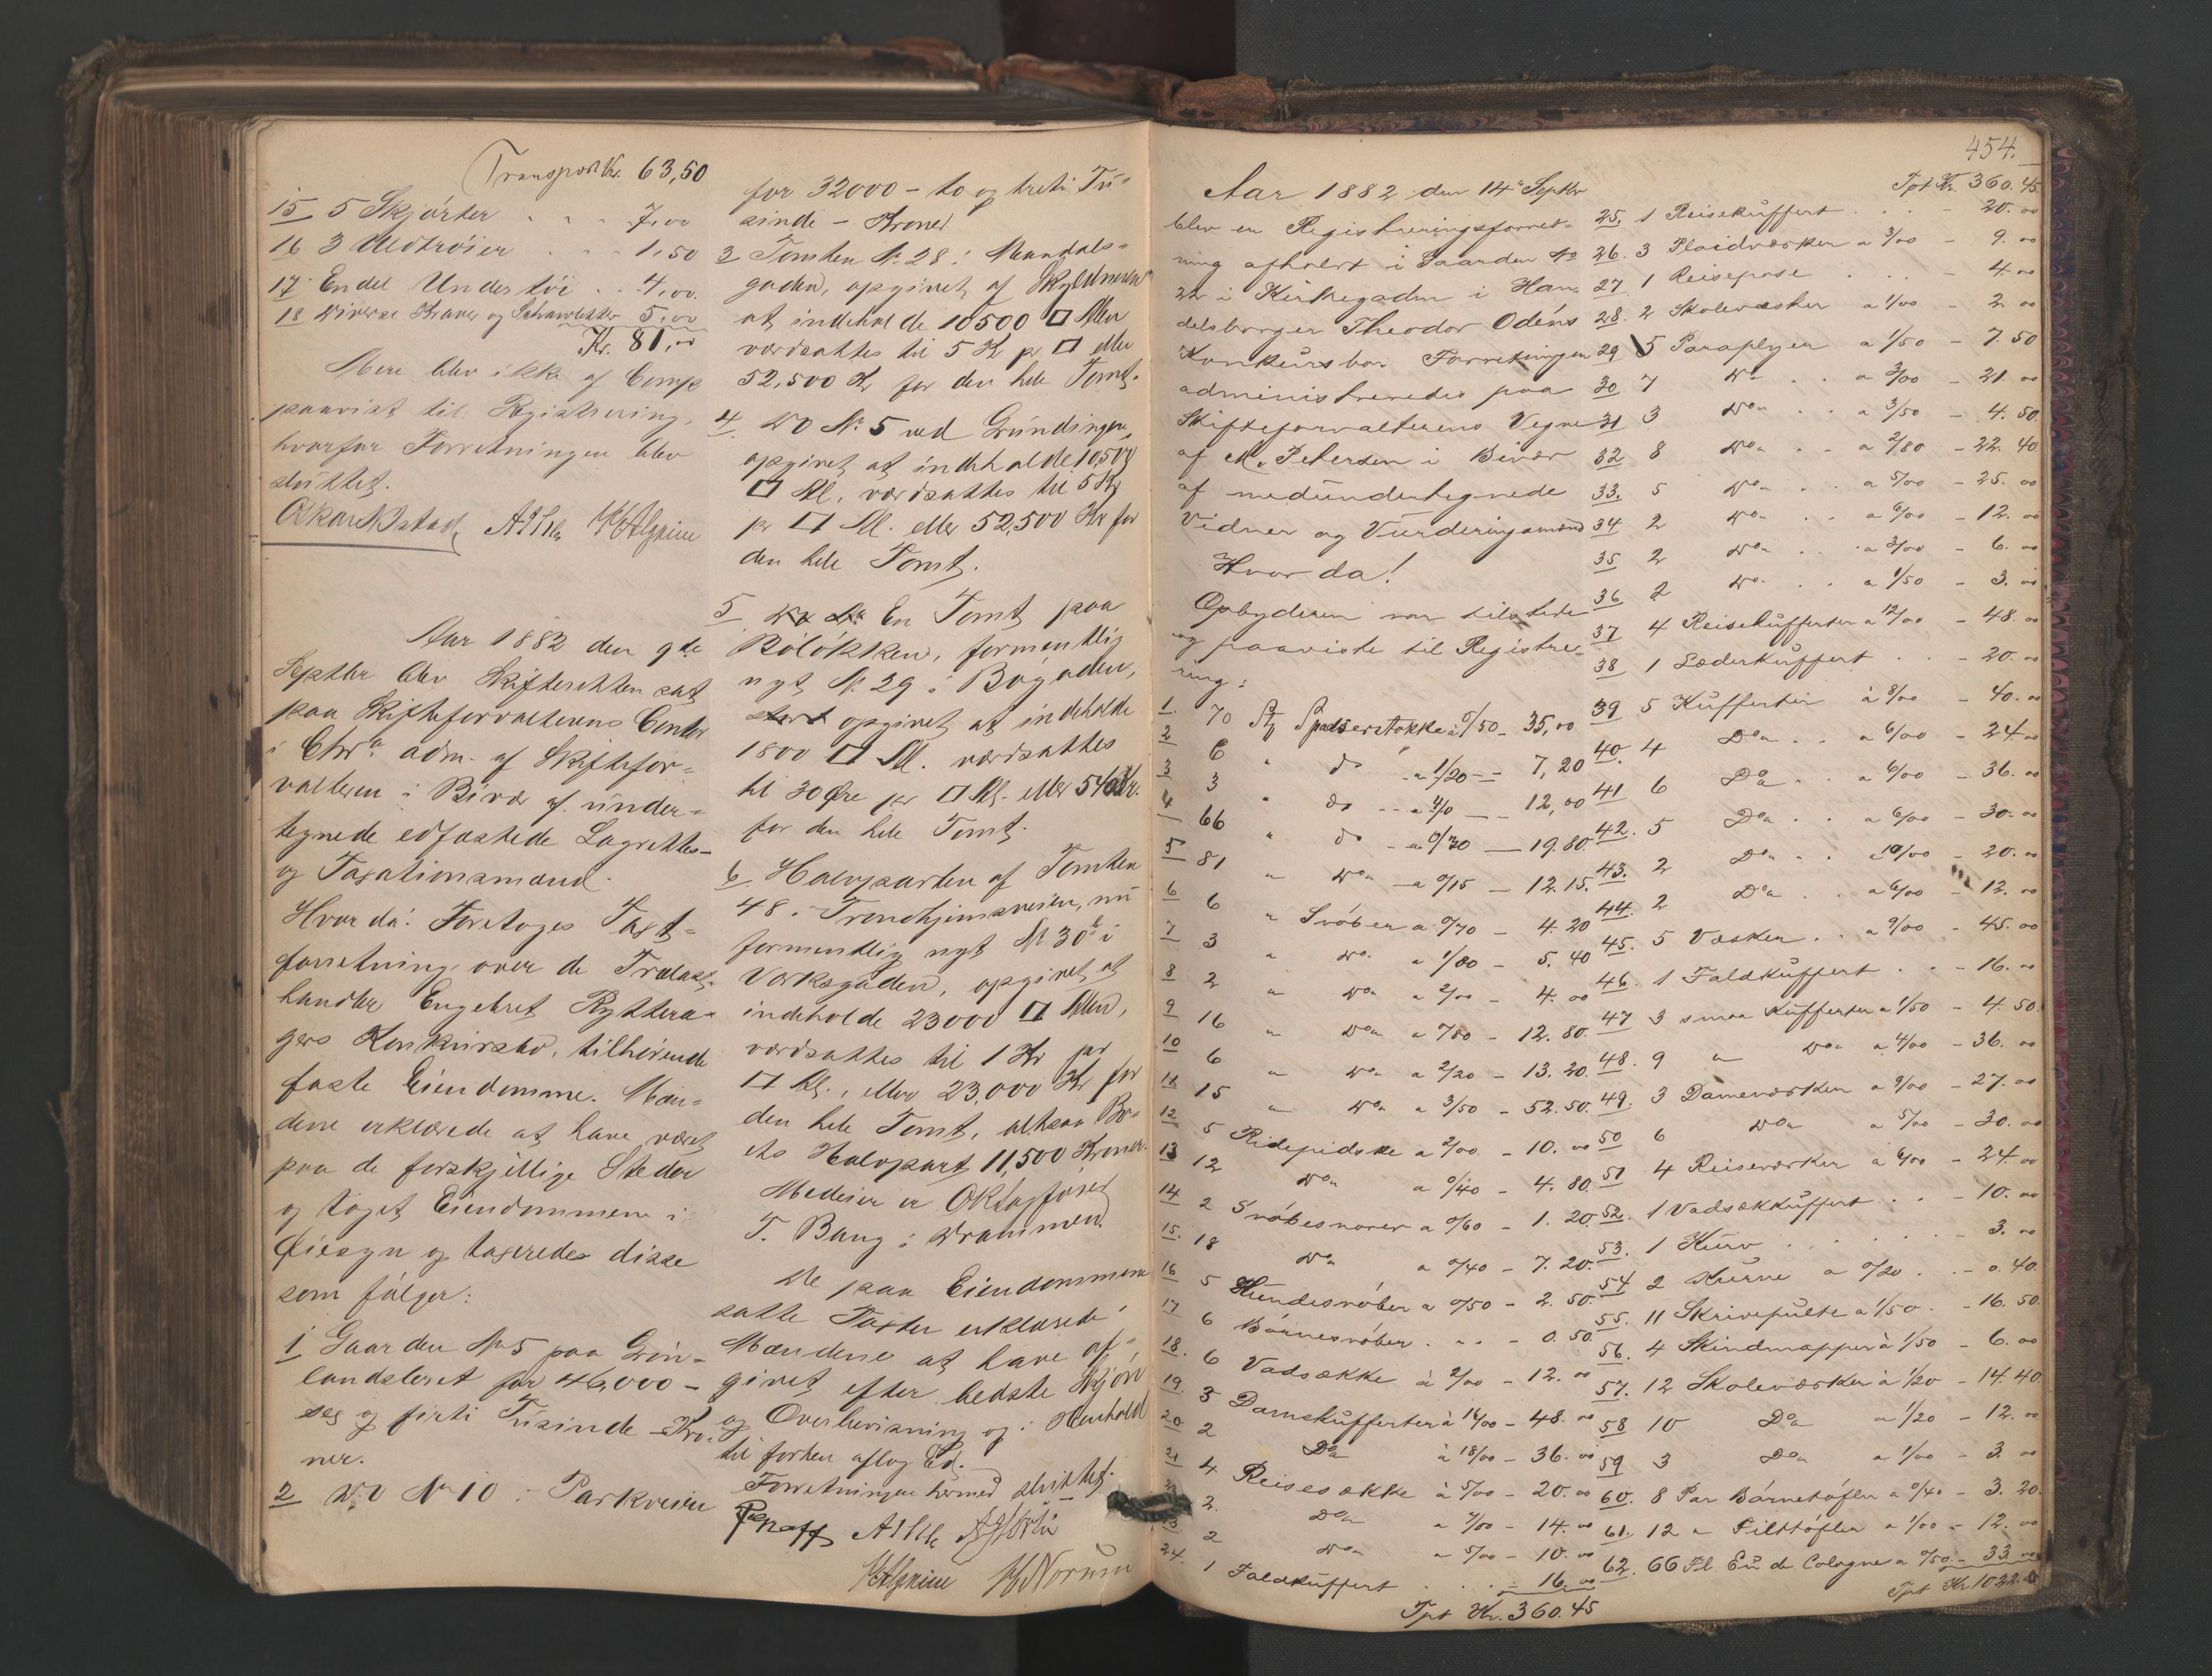 Transport Kr. 63,50
15 5 Skjorter . . . 7,00
16 3 Uldtrøier . . . 1,50
17 Endel Undertøi . . 4,00
18 Diverse Kraver og 5,00
Kr. 81,00
Mere blev ikke af Comp
paavist til Registrering,
hvorfor Forretningen blev
sluttet.
Aar 1882 den 9de
Septbr blev Skifteretten sat
paa Skifteforvalterens Contor
i Chra adm. af Skiftefor-
valteren i Bivær af under-
tegnede edfæstede Lagrettes-
og Taxationsmænd.
Hvor da: Foretoges Taxt-
forretning over de Trælast-
handler Engebret Ryttera-
gers Konkursbo, tilhørende
faste Eiendomme. Mæn-
dene erklærede at have været
paa de forskjellige Steder
og taget Eiendommene i
Øiesyn og taxeredes disse
som følger:
1 Gaarden No 5 paa Grøn-
landsleret for 46,000 -
sex og firti Tusinde Kro-
ner.
2 Do No 10 i Parkveien
for 32000 - to og treti Tu-
sinde - Kroner
3 Tomten No 28 i Mandals-
gaden, opgivet af Skyldneren
at indeholde 10500 □ Alen
værdsattes til 5 Kr pr □ eller
52,500 Kr for den hele Tomt.
4. Do No 5 ved Grundingen,
opgivet at indeholde 10,500
□ Al. værdsattes til 5 Kr
pr □ Al. eller 52,500 Kr for
den hele Tomt.
5 Do No En Tomt paa
Røløkken, formentlig
nyt No 29 i Bøgaden,
stort opgivet at indeholde
1800 □ Al. værdsattes
til 30 Øre pr □ Al. eller 540 Kr.
for den hele Tomt.
6. Halvparten af Tomten
48 i Trondhjemsveien, nu
formentlig nyt No 30b i
Verksgaden, opgivet at
indeholde 23000 □ Alen,
værdsattes til 1 Kr pr
□ Al., eller 23,000 Kr for
den hele Tomt, altsaa Bo-
ets Halvpart 11,500 Kroner.
Medeier er ORSagfører
T. Bang i Drammen.
De paa Eiendommene
satte Taxter erklærede
Mændene at have af-
givet efter bedste Skjøn
og Overbevisning og i Henhold
til forhen aflag Ed.
Forretningen hermed sluttet.
H Norum
454.
Aar 1882 den 14de Septbr
blev en Registreringsforret-
ning afholdt i Gaarden No
22 i Kirkegaden i Han-
delsborger Theodor Odéns
Konkursbo. Forretningen
administreredes paa
Skifteforvalterens Vegne
af M. Petersen i Bivær
af medundertegnede
Vidner og Vurderingsmænd
Hvor da!
Opbyderen var tilstede
og paaviste til Registre-
ring:
1. 70 St Spadserstokke à 0/50 - 35,00
2 6 " do " a 1/20 - 7,20
3 3 " do . . a 4/0 - 12,00
4 66 " do - a 0/30 - 19.80.
5 81 " Doa - a 0/15 - 12.15.
6 6 " Svøber a 0/70 - 4.20
7 3 " Do. a 1/80 - 5.40
8 2 " Doa a 2/00 - 4.00
9 16 " Doa a 0/80 - 12.80.
10 6 " Doa a 2/20 - 13.20.
11 15 " Doa a 3/50 - 52.50.
12 5 Ridepidske a 2/00 - 10.00
13 12 Doa a 0/40 - 4.80
14 2 Svøbesnorer a 0/60 - 1.20
15. 18 Doa a 0/40 - 7.20.
16 5 Hundesvøber a 0/50 - 2.50.
17 6 Børnesvøber . . . - 0.50.
18. 6 Vadsække à 2/00 - 12.00
19. 3 Damekufferter à 16/00 - 48.00
20 2 Doa à 18/00 - 36.00
21 4 Reisesække à 5/00 - 20.00
22 2. Doa a 7/00 - 14.00
23 2 Doa a 5/00 - 10.00
24. 1 Faldkuffert . . . - 16.00
Tpt Kr. 360.45
Tpt Kr. 360.45
25. 1 Reisekuffert . . . - 20.00
26. 3 Plaidvæsker a 3/00 - 9.00
27 1 Reisepose . . . - 4.00
28. 2 Skolevæsker a 1/00 - 2.00
29 5 Paraplyer a 1/50 - 7.50
30 7 Do . . a 3/00 - 21.00
31 3 Doa . . a 3/50 - 4.50
32 8 Doa . . a 2/80 - 22.40
33. 5 Doa . . a 5/00 - 25.00
34 2 Doa . . a 6/00 - 12.00
35 2 Doa . . a 3/00 - 6.00
36 2 Do. . . a 1/50 - 3.00
37 4 Reisekufferter a 12/00 - 48.00
38 1 Læderkuffert . . - 20.00
39 5 Kufferter à 8/00 - 40.00
40. 4 Doa . . a 6/00 - 24.00
41 6 Doa . . a 6/00 - 36.00
42. 5 Doa . . a 6/00 - 30.00
43. 2 Doa . . a 10/00 - 20.00
44. 2 Doa . . a 6/00 - 12.00
45. 5 Væsker . . a 9/00 - 45.00
46. 1 Faldkuffert . . - 16.00
47 3 smaa Kufferter a 1/50 - 4.50.
48. 9 " Doa a 4/00 - 36.00
49. 3 Damevæsker a 9/00 - 27.00
50 6 Doa a 5/00 - 30.00
51 4 Reisevæsker a 6/00 - 24.00
52. 1 Vadsækkuffert . . - 10.00
53. 1 Kurv . . . . - 3.00
54 2 Kurve a 0/20 . . - 0.40.
55. 11 Skrivepulte a 1/50 . - 16.50.
56. 4 Skindmapper à 1/50 - 6.00
57. 12 Skolevæsker à 1/20 - 14.40
58 10 Doa a 1/20 - 12.00
59 3 Doa a 1/00 - 3.00
60. 8 Par Børnetøfler a 0/40 - 3.20.
61. 12 " Filttøfler a 1/00 - 12.00
62. 66 Fl Eu de Cologne a 0/50 - 33.00